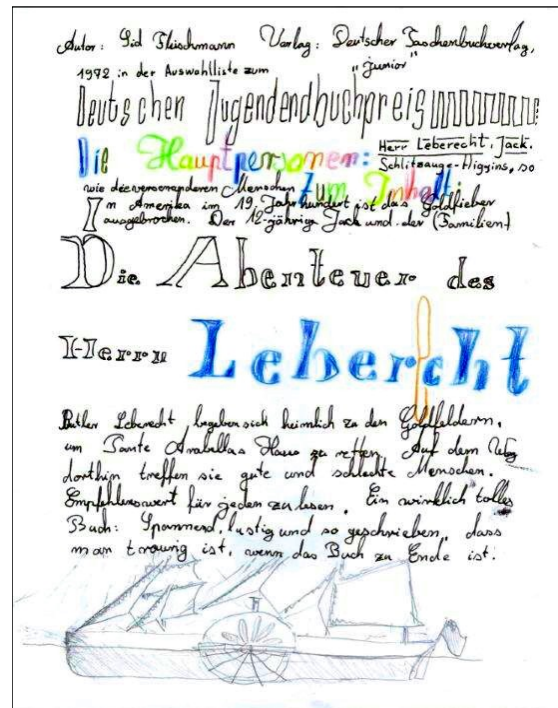 Autor: Sid Fleischmann Verlag: Deutscher Taschenbuchverlag,
1972 in der Auswahlliste zum "junior"
Deutschen Jugendendbuchpreis
Die Hauptpersonen: Herr Leberecht, Jack.
Schlitzauge-Higgins, so
wie die anderen Menschen Zum Inhalt:
In Amerika im 19. Jahrhundert ist das Goldfieber
ausgebrochen. Der 12-jährige Jack und der (Familien)
Die Abenteuer des
Herrn Lebercht
Butler Leberecht begeben sich heimlich zu den Goldfeldern,
um Tante Arabellas Haus zu retten. Auf dem Weg
dorthin treffen sie gute und schlechte Menschen.
Empfehlenswert für jeden zu lesen. Ein wirklich tolles
Buch: Spannend, lustig und so geschrieben, dass
man traurig ist, wenn das Buch zu Ende ist.